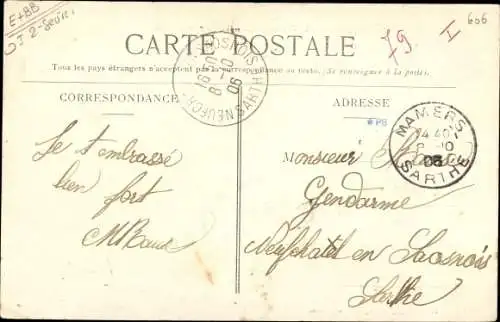 E+BB
2-Sèvr.
79 I
606
CARTE POSTALE
Tous les pays étrangers n'acceptent pas la correspondance au recto. (Se renseigner à la poste).
NEUFCH - SAOSNOIS SARTHE
18 10
8 - 10
06
CORRESPONDANCE
ADRESSE
*PB
MAMERS
8 - 10
06
SARTHE
Je t'embrasse
bien fort
MONSIEUR
Gendarme
Neufchatel en Saosnois
Sarthe